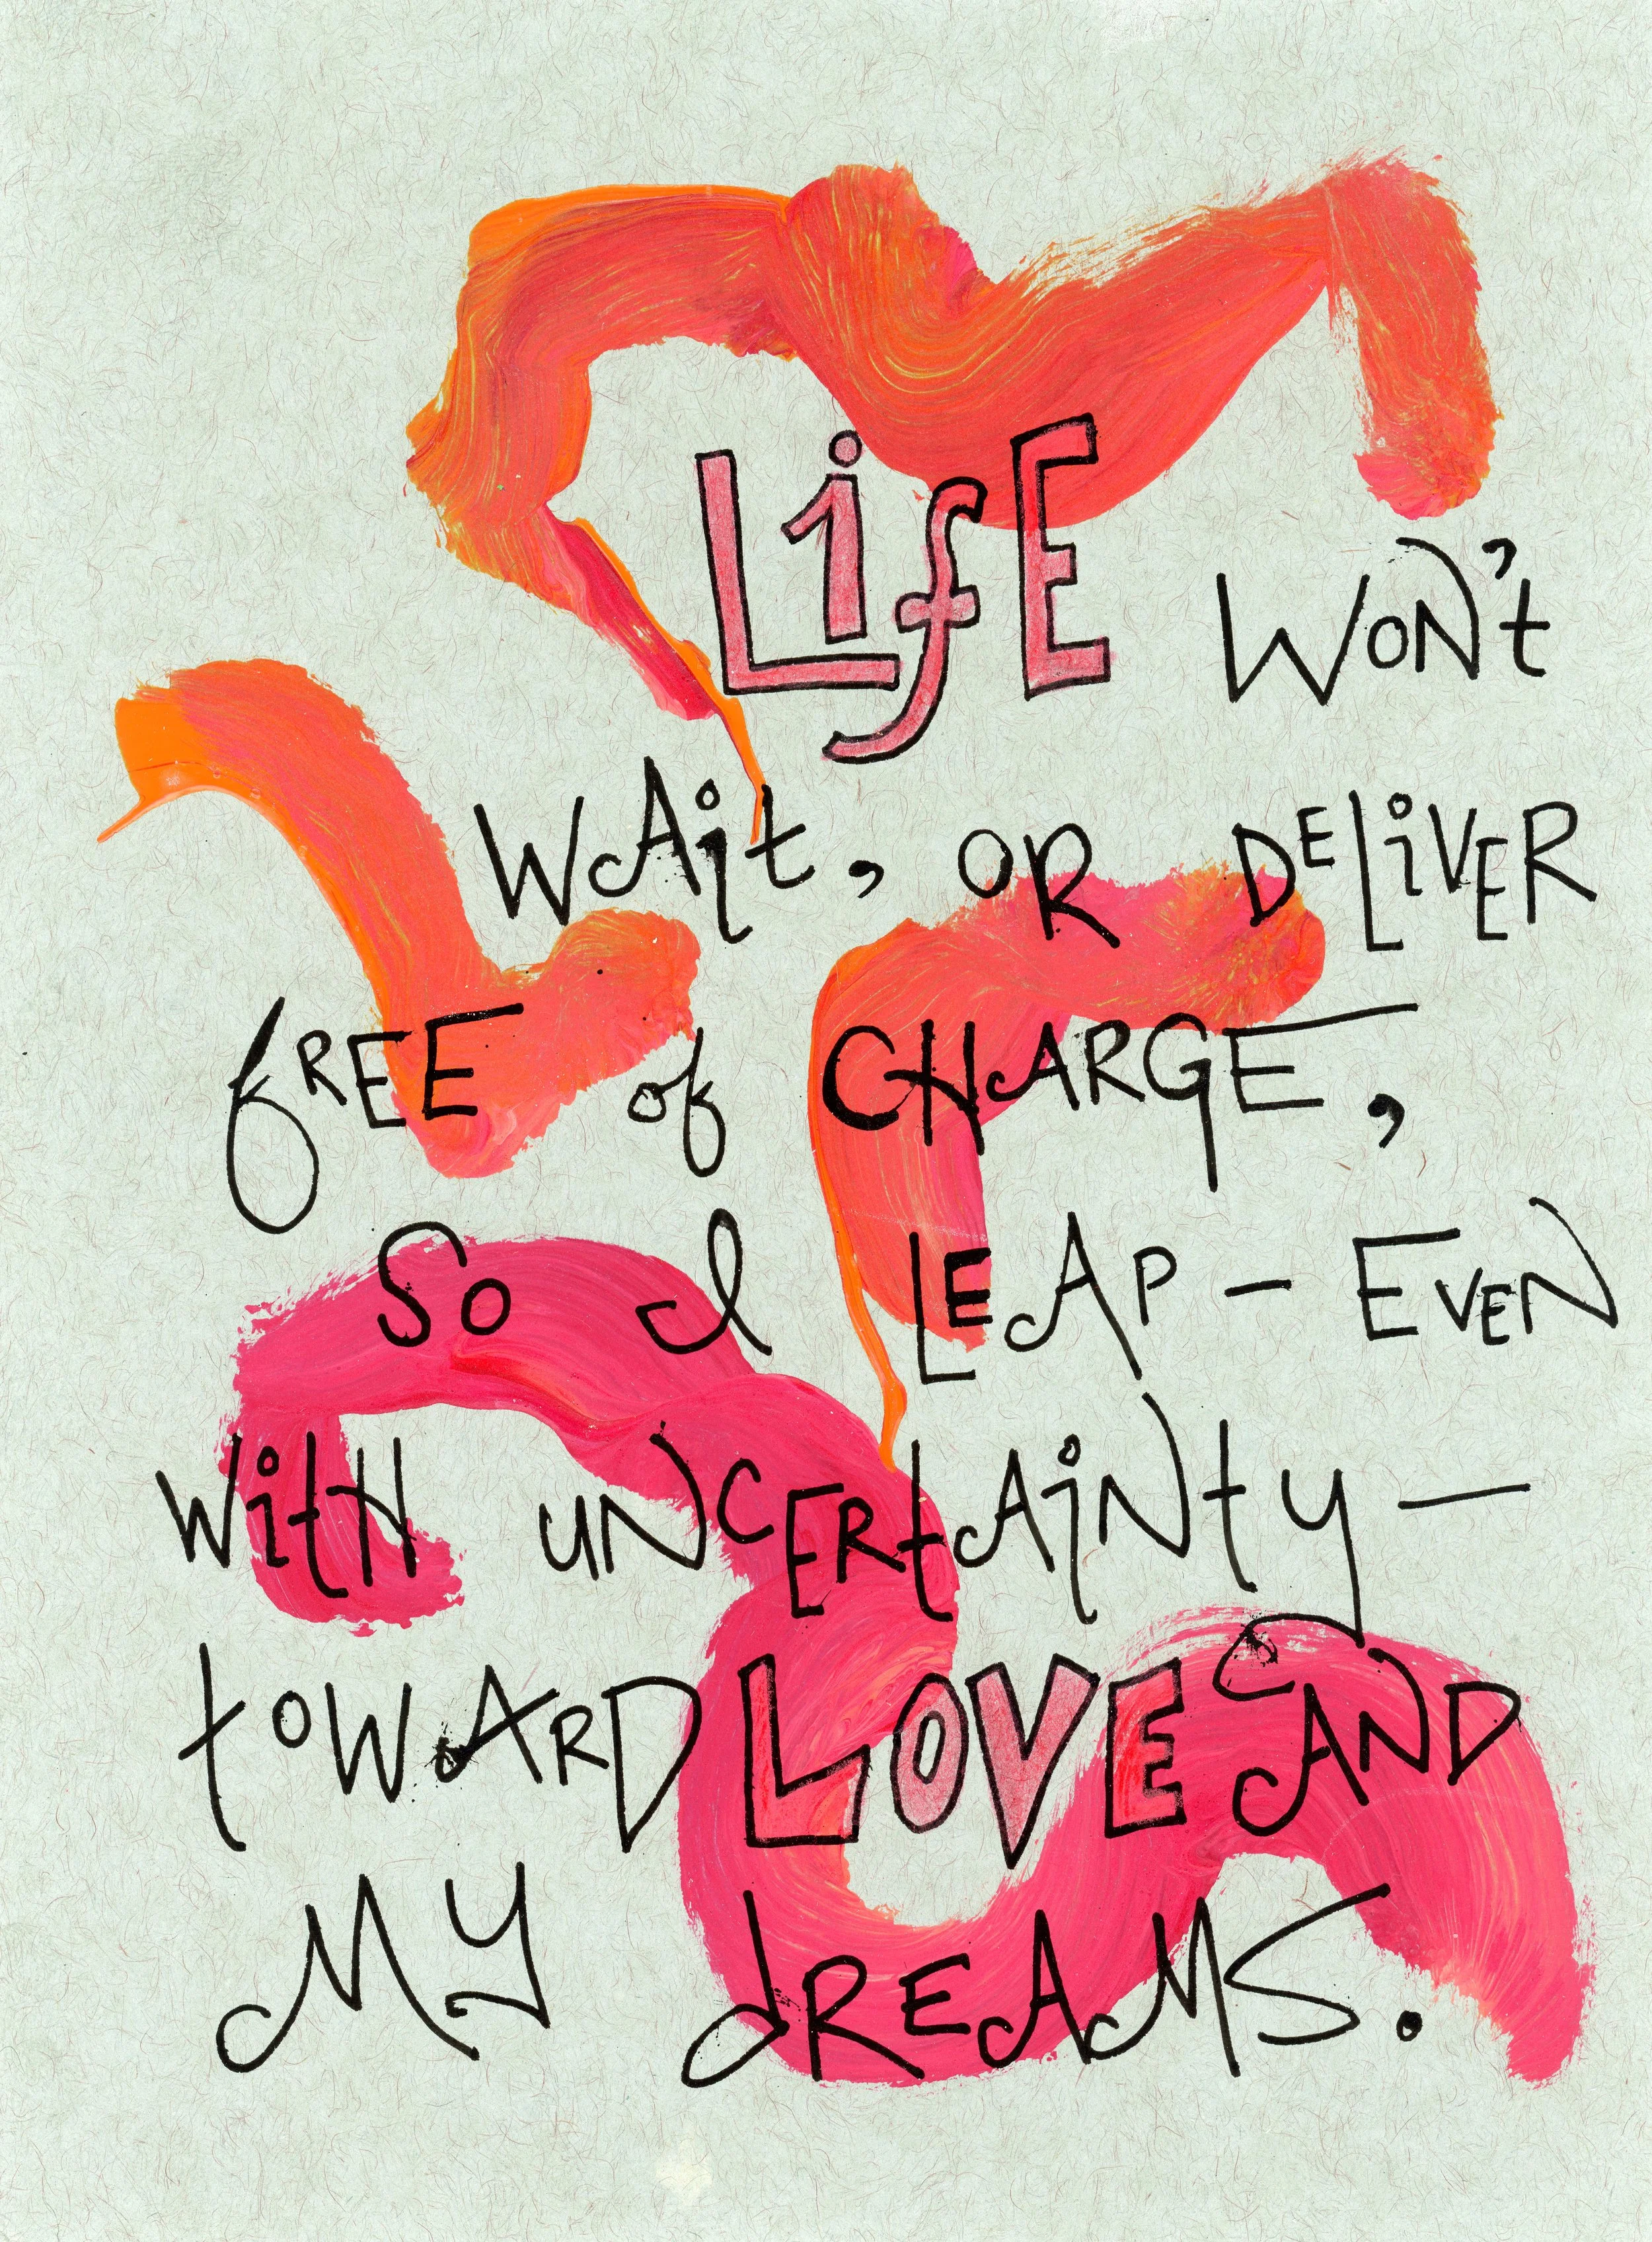 LifE WON't
WAit, OR DELiVER
fREE of CHARGE,
So I LEAP – EVEN
WitH UNCERtAiNty –
toWARD LOVE AND
MY dREAMS.